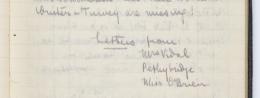 Winter & Turvey are missing!
Letters from
Mrs Vidal
Pethybridge
Miss O'Brien